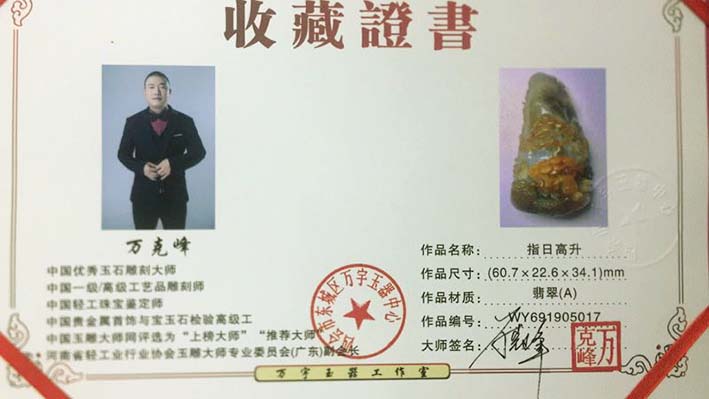 收藏證書
万克峰
中国优秀玉石雕刻大师
中国一级/高级工艺品雕刻师
中国轻工珠宝鉴定师
中国贵金属首饰与宝玉石检验高级工
中国玉雕大师网评选为“上榜大师”“推荐大师”
河南省轻工业行业协会玉雕大师专业委员会(广东)副会长
四会市东城区万宇玉器中心
作品名称: 指日高升
作品尺寸: (60.7×22.6×34.1)mm
作品材质: 翡翠(A)
作品编号: WY691905017
大师签名:
万克峰
万宇玉器工作室